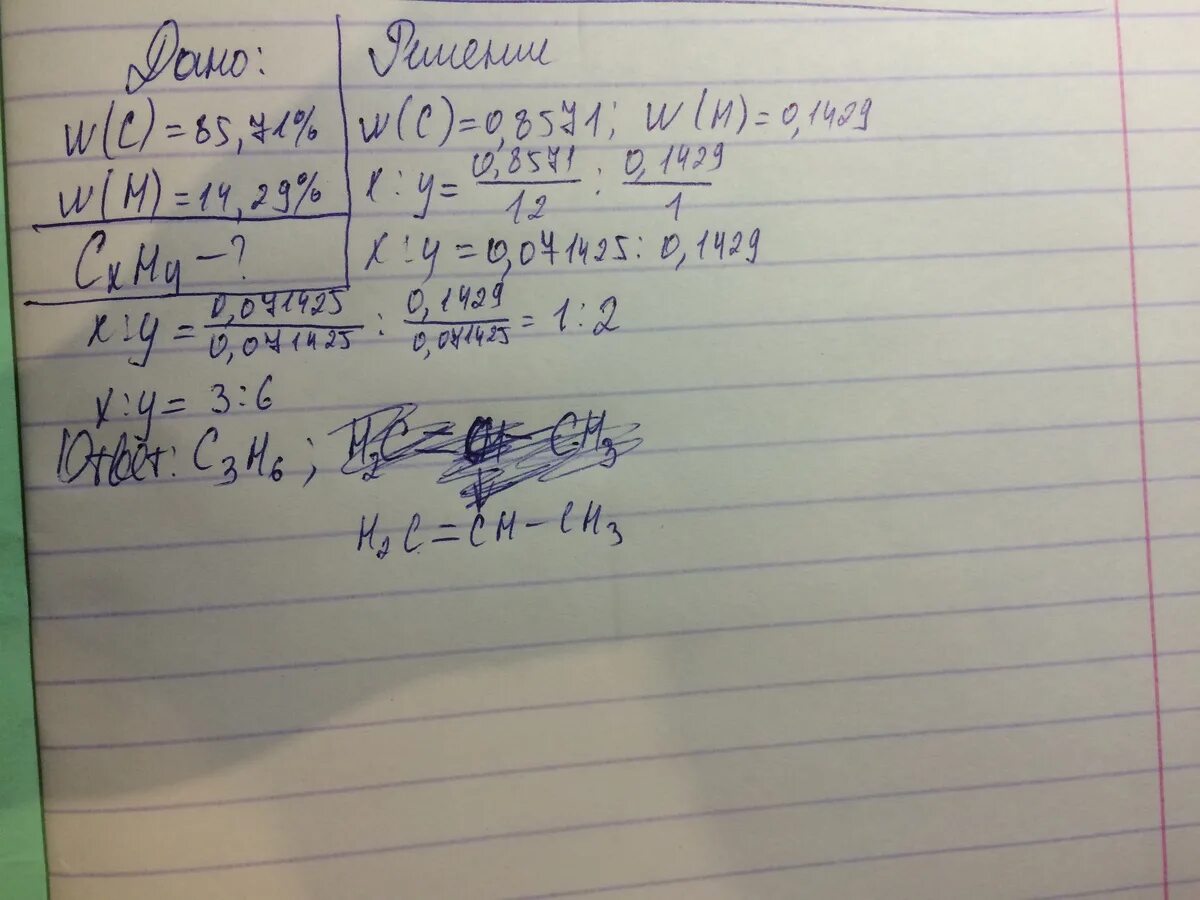 Дано:
W(C)=85,71%
W(H)=14,29%
CxHy-?
Решение
W(C)=0,8571; W(H)=0,1429
x:y=0,8571/12:0,1429/1
x:y=0,071425:0,1429
x:y=0,071425/0,071425:0,1429/0,071425=1:2
x:y=3:6
Ответ: C₃H₆; H₂C=CH-CH₃
H₂C=CH-CH₃